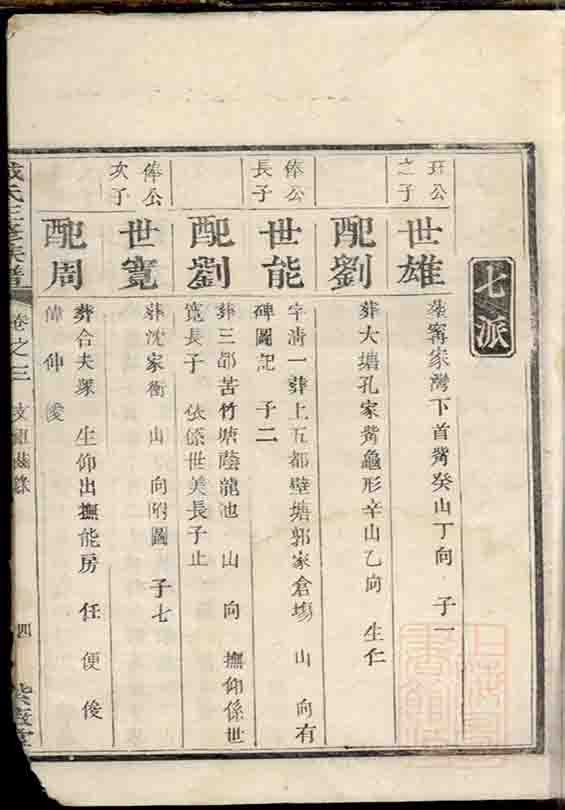 七派
玨公之子
世雄
葬甯家灣下首觜癸山丁向 子一
配劉
葬大塘孔家觜龜形辛山乙向 生仁
俸公長子
世能
字清一葬上五都壁塘郭家倉塲 山 向有
碑圖記 子二
配劉
葬三都苦竹塘蔭龍池 山 向 撫仰係世
寬長子 依係世美長子止
俸公次子
世寬
葬沈家衝 山 向附圖 子七
配周
葬合夫塚 生仰出撫能房 任 便 俊
偉 伸 俊
氏三修族譜
卷之三
四